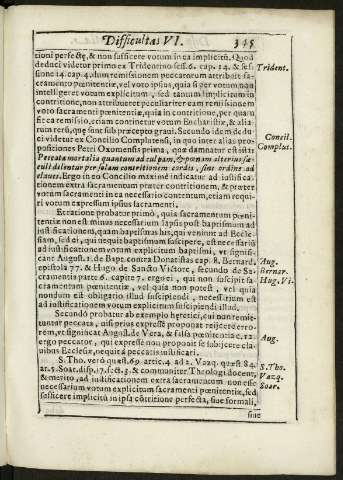 Difficultas VI. 345
tioni perfectę, & non sufficere votum in ea implicitũ. Quod
deduci videtur primo ex Tridentino sess. 6. cap. 14. & ses
sione 14. cap. 4. dum remissionem peccatorum attribuit sa-
cramento pœnitentiæ, vel voto ipsius, quia si per votum non
intelligeret votum explicitum, sed tantum implicitum in
contritione, non attribueret peculiariter eam remissionem
voto sacramenti pœnitentiæ, quia in contritione, per quam
fit ea remissio, etiam continetur votum Eucharistiæ, & alia-
rum rerũ, que sunt sub præcepto graui. Secundo idem dedu-
ci videtur ex Concilio Complutensi, in quo inter alias pro-
positiones Petri Oxomensis prima, quæ damnatur est ista:
Peccata mortalia quantum ad culpam, & pœnam alterius sæ-
culi delentur per solam contritionem cordis, sine ordine ad
claues. Ergo in eo Concilio maximè indicatur ad iustifica-
tionem extra Sacramentum præter contritionem, & præter
votum sacramenti in ea necessario contentum, etiam requi-
ri votum expressum ipsius sacramenti.
Et ratione probatur primò, quia sacramentum pœni-
tentiæ non est minus necessarium lapsis post baptismum ad
iustificationem, quam baptismus his, qui veniunt ad Eccle-
siam, sed ei, qui nequit baptismum suscipere, est necessarium
ad iustificationem votum explicitum baptismi, vt signifi-
cant August. 1. de Bapt. contra Donatistas cap. 8. Bernard.
epistola 77. & Hugo de Sancto Victore, secundo de Sa-
cramentis parte 6. capite 7. ergo ei, qui non suscipit sa-
ciamentum pœnitentiæ, vel quia non potest, vel quia
nondum est obligatio illud suscipiendi, necessarium est
ad iustificationem votum explicitum suscipiendi illud.
Secundò probatur ab exemplo hęretici, cui non remit-
tuntur peccata, nisi prius expressè proponat reijcere erro-
rem, vt significat August. de Vera, & falsa pœnitentia c. 12.
ergo peccator, qui expresse non proposuit se subijcere cla-
uibus Ecclesiæ, nequit à peccatis iustificari.
S. Tho. verò quæst. 69. artic. 4. ad 2. Vazq. quæst. 84.
ar. 5. Soar. disp. 17. sect. 3. & communiter Theologi docent,
& merito, ad iustificationem extra sacramentum non esse
necessarium votum explicitum sacramenti pœnitentiæ, sed
sufficere implicitũ in ipsa cõtritione perfecta, siue formali,
siue
Trident.
Concil.
Complut.
Aug.
Bernar.
Hug. Vi.
Aug.
S. Tho.
Vazq.
Soar.